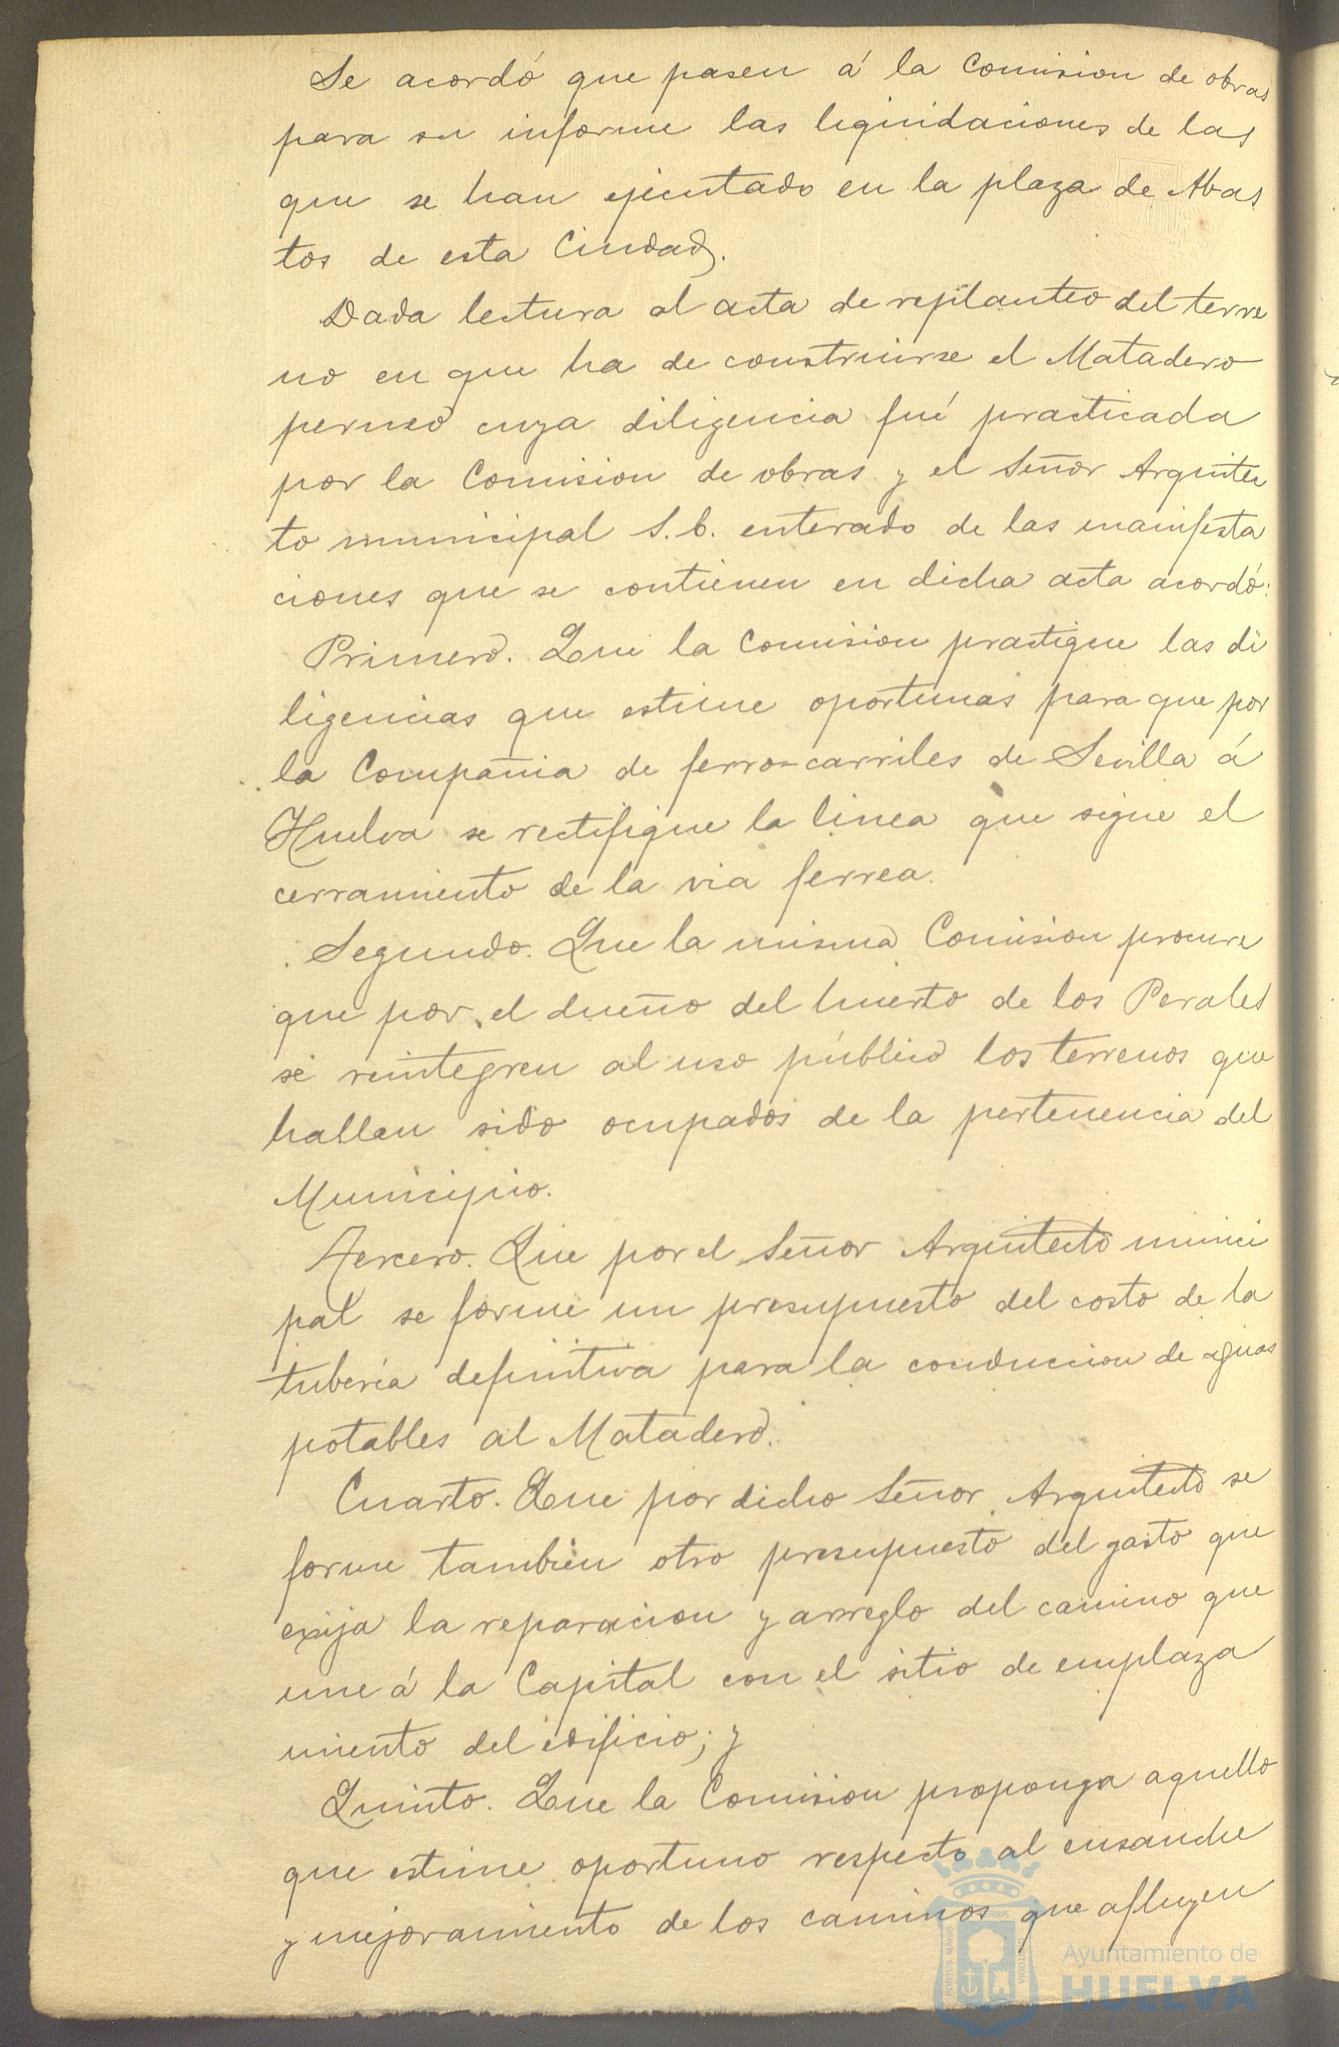 Se acordó que pasen á la Comision de obras
para su informe las liquidaciones de las
que se han ejecutado en la plaza de Abas
tos de esta Ciudad.
Dada lectura al acta de replanteo del terre
no en que ha de construirse el Matadero
cuya diligencia fué practicada
por la Comision de obras y el Señor Arquitec
to municipal S. E. enterado de las manifesta
ciones que se contienen en dicha acta acordó:
Primero. Que la Comision practique las di
ligencias que estime oportunas para que por
la Compañia de ferro-carriles de Sevilla á
Huelva se rectifique la linea que sigue el
cerramiento de la via ferrea.
Segundo. Que la misma Comision procure
que por el dueño del huerto de los Perales
se reintegren al uso público los terrenos que
hallan sido ocupados de la pertenencia del
Municipio.
Tercero. Que por el Señor Arquitecto munici
pal se forme un presupuesto del costo de la
tubería definitiva para la conduccion de aguas
potables al Matadero.
Cuarto. Que por dicho Señor Arquitecto se
forme tambien otro presupuesto del gasto que
exija la reparacion y arreglo del camino que
une á la Capital con el sitio de emplaza
miento del edificio; y
Quinto. Que la Comision proponga aquello
que estime oportuno respecto al ensanche
y mejoramiento de los caminos que afluyen
Ayuntamiento de
HUELVA